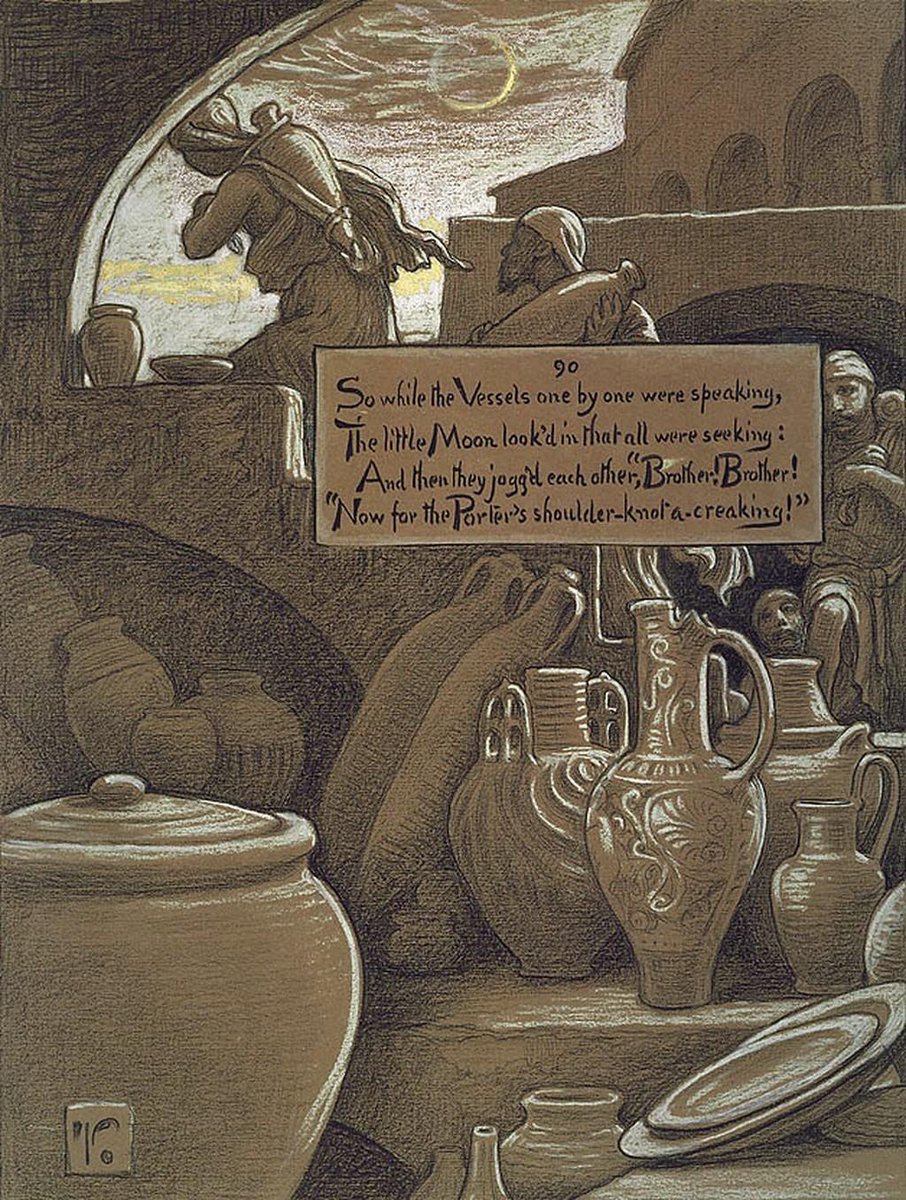 90
So while the Vessels one by one were speaking,
The little Moon look'd in that all were seeking:
And then they jogg'd each other, "Brother! Brother!
"Now for the Porter's shoulder-knot a-creaking!"